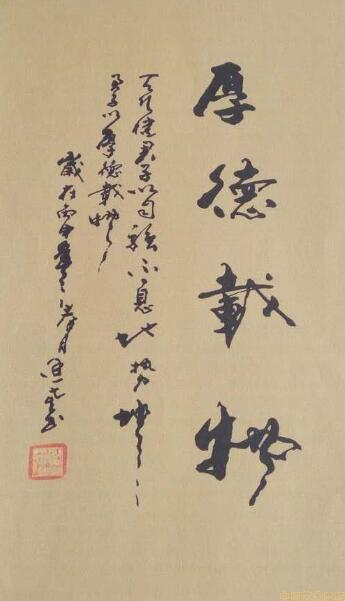 厚德載物
天行健君子以自強不息地势坤
君子以厚德載物
歲在丙申